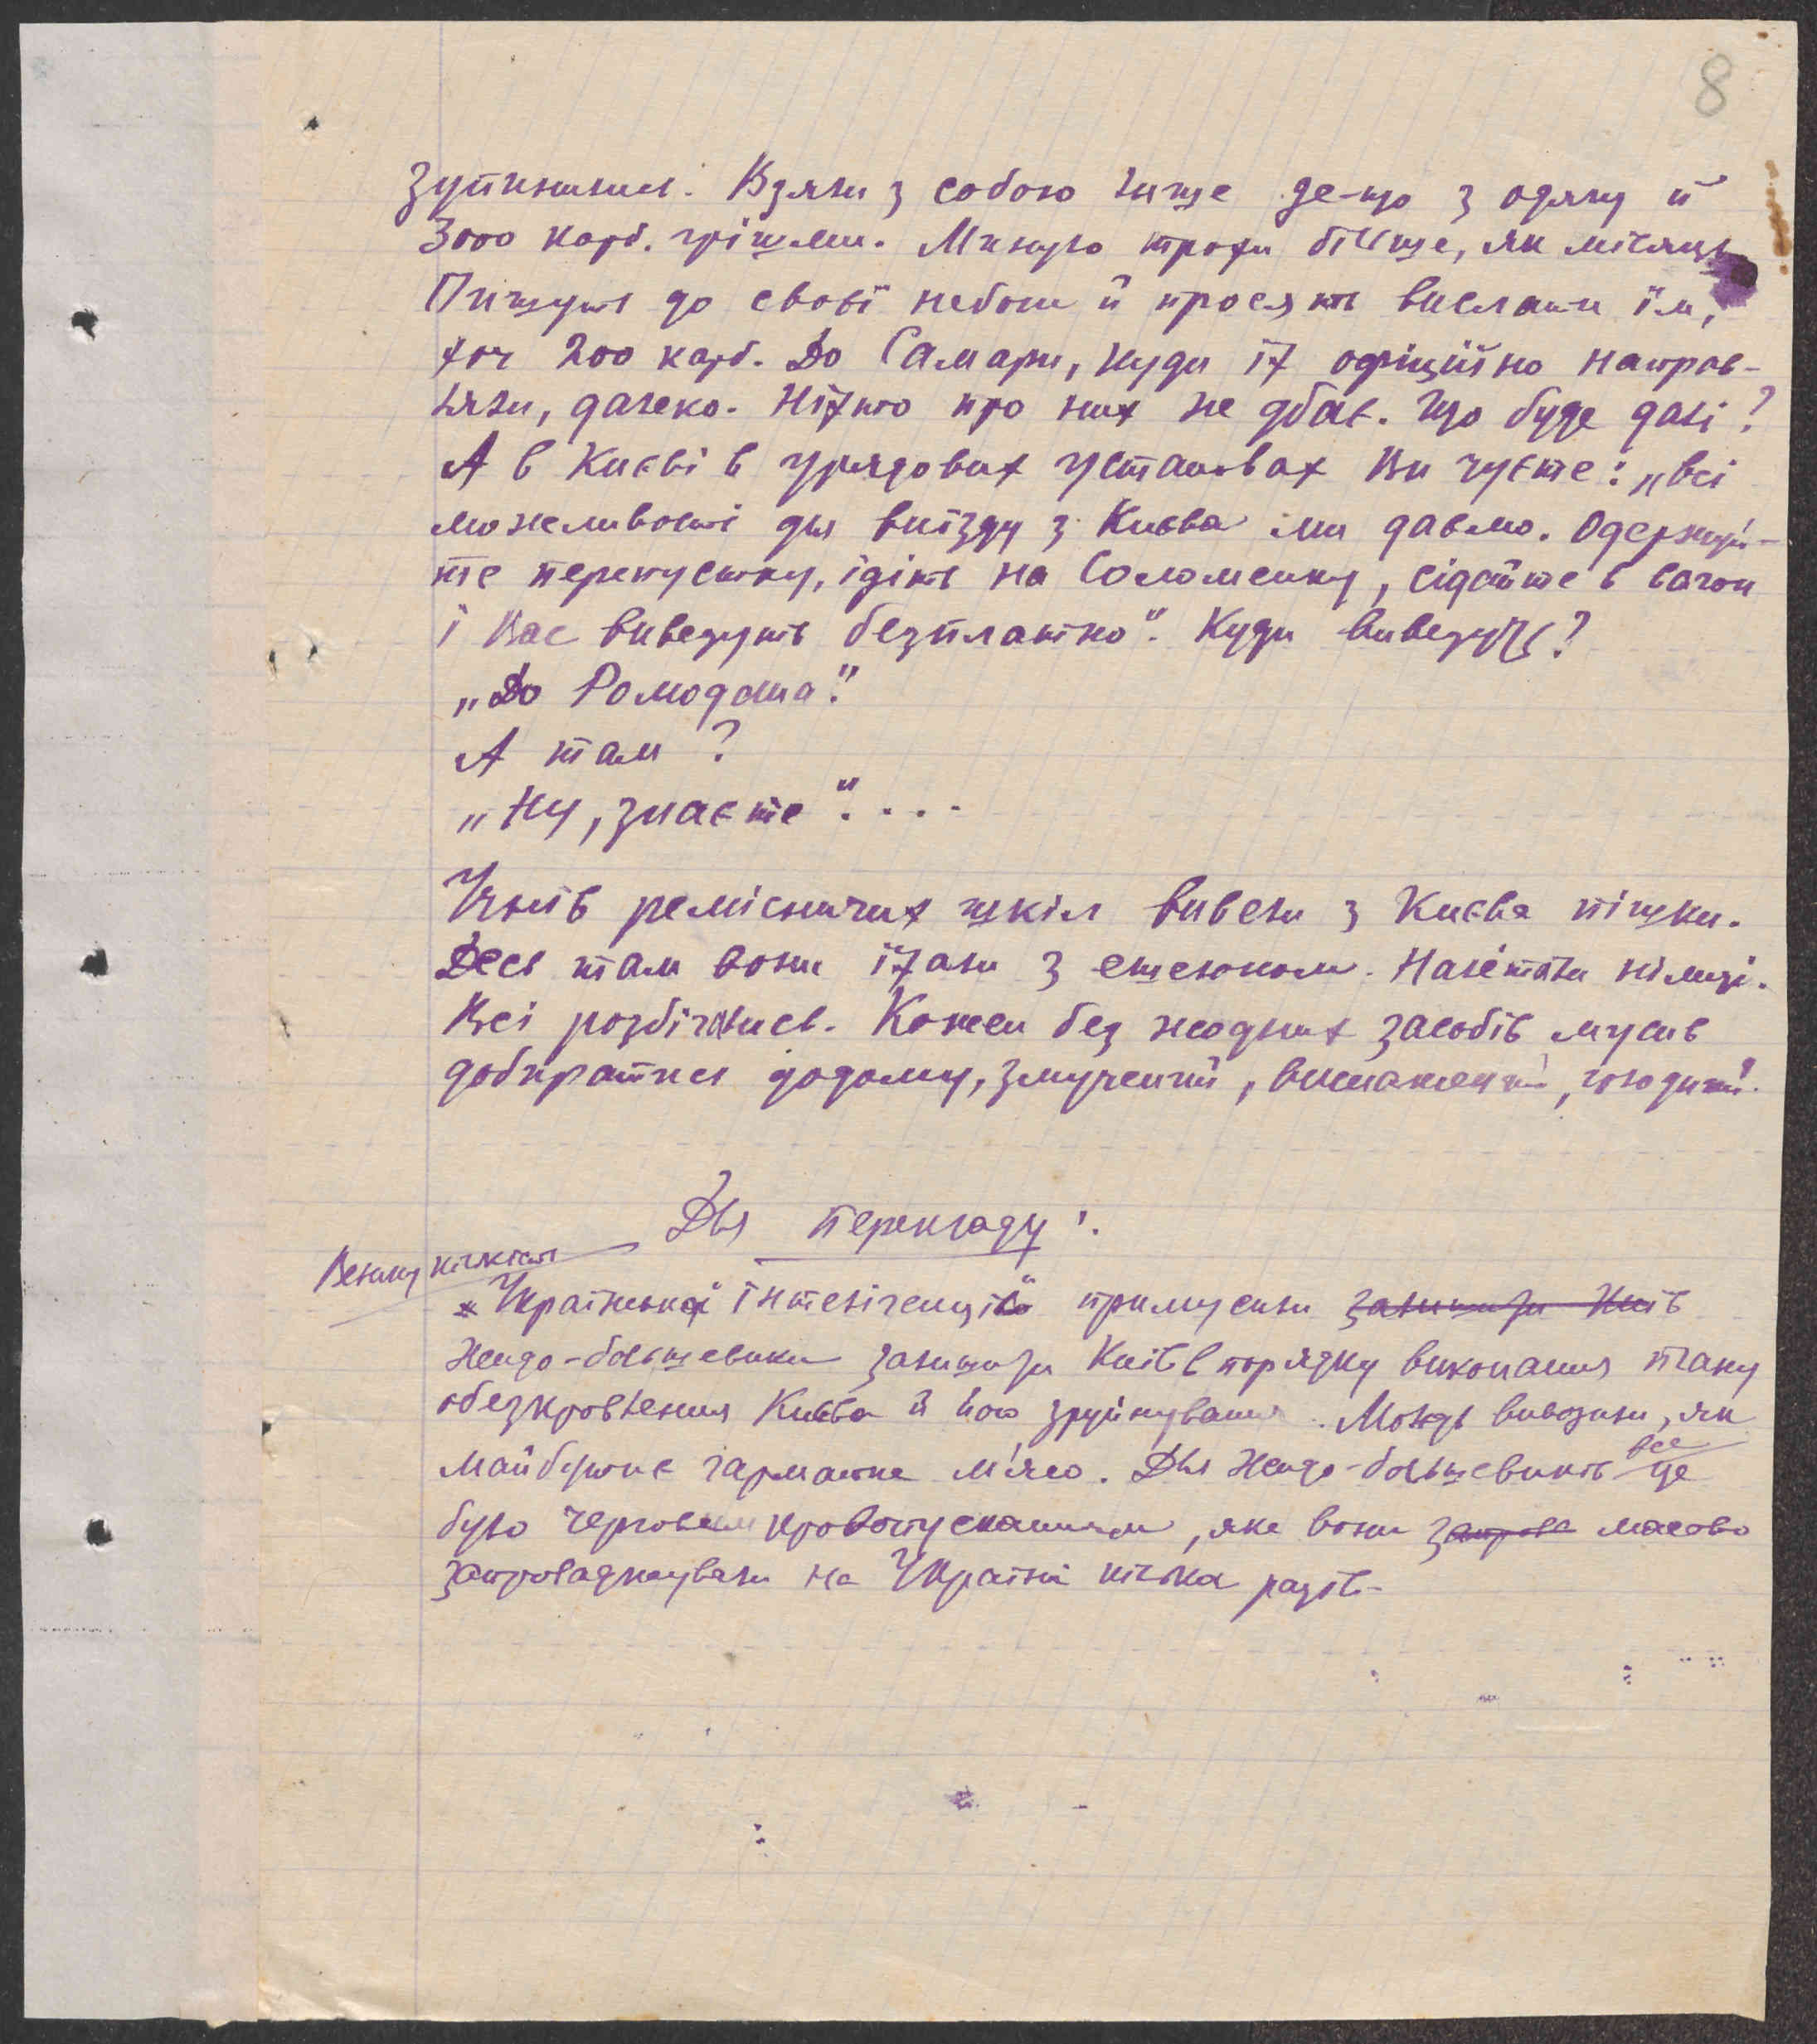 8
зупинились. Взяли з собою лише де-що з одягу й
3000 карб. грішми. Минуло трохи більше, як місяць
Пишуть до своєї небоги й просять вислати їм,
хоч 200 карб. До Самари, куди їх офіційно направ-
ляли, далеко. Ніхто про них не дбає. Що буде далі?
А в Києві в урядових установах Ви чуєте: „всі
можливості для виїзду з Києва ми даємо. Одержуй-
те перепустку, ідіть на Соломенку, сідайте в вагон
і Вас вивезуть безплатно". Куди вивезуть?
„До Ромодана".
А там?
„Ну, знаєте"....
Учнів ремісничих шкіл вивели з Києва пішки.
Десь там вони їхали з ешелоном. Налетіли німці.
Всі розбіглись. Кожен без жодних засобів мусив
добиратися додому, змучений, виснажений, голодний.
Для перекладу:
Велику кількість
Української інтелігенції примусили залишити Київ
жидо-большевики залишити Київ в порядку виконання плану
обезкровлення Києва й його зруйнування. Молодь вивозили, як
майбутнє гарматне м'ясо. Для жидо-большевиків все це
було черговим кровопусканням, яке вони запров масово
запроваджували на Україні кілька разів.